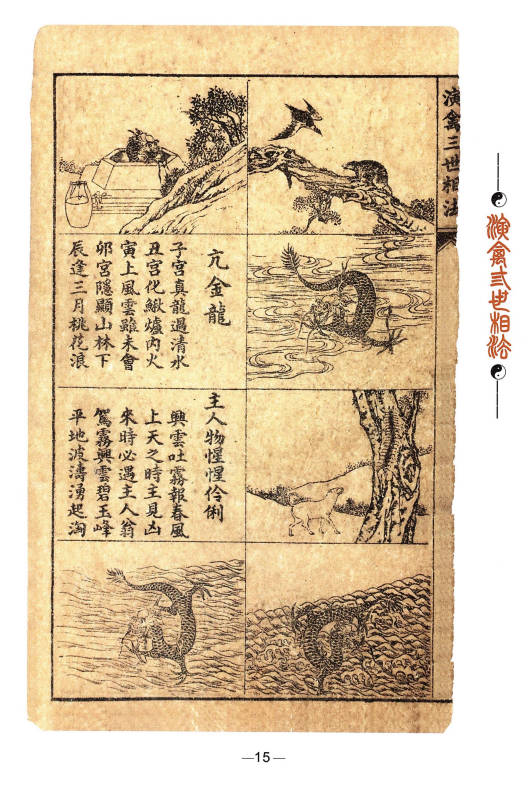 演禽弎世相法
演禽三世相法
亢金龍
子宮真龍過清水
丑宮化鰍爐內火
寅上風雲雖未會
卯宮隱顯山林下
辰逢三月桃花浪
主人物惺惺伶俐
興雲吐霧報春風
上天之時主見凶
來時必遇主人翁
駕霧興雲碧玉峰
平地波濤湧起淘
—15—